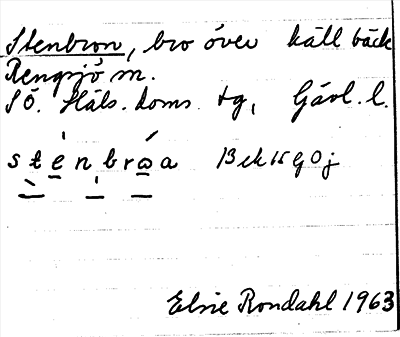 Stenbron, bro över källbäck
Rengsjö sn.
Sö. Häls. doms. tg, Gävl. l.
stenbroa
Elsie Rondahl 1963